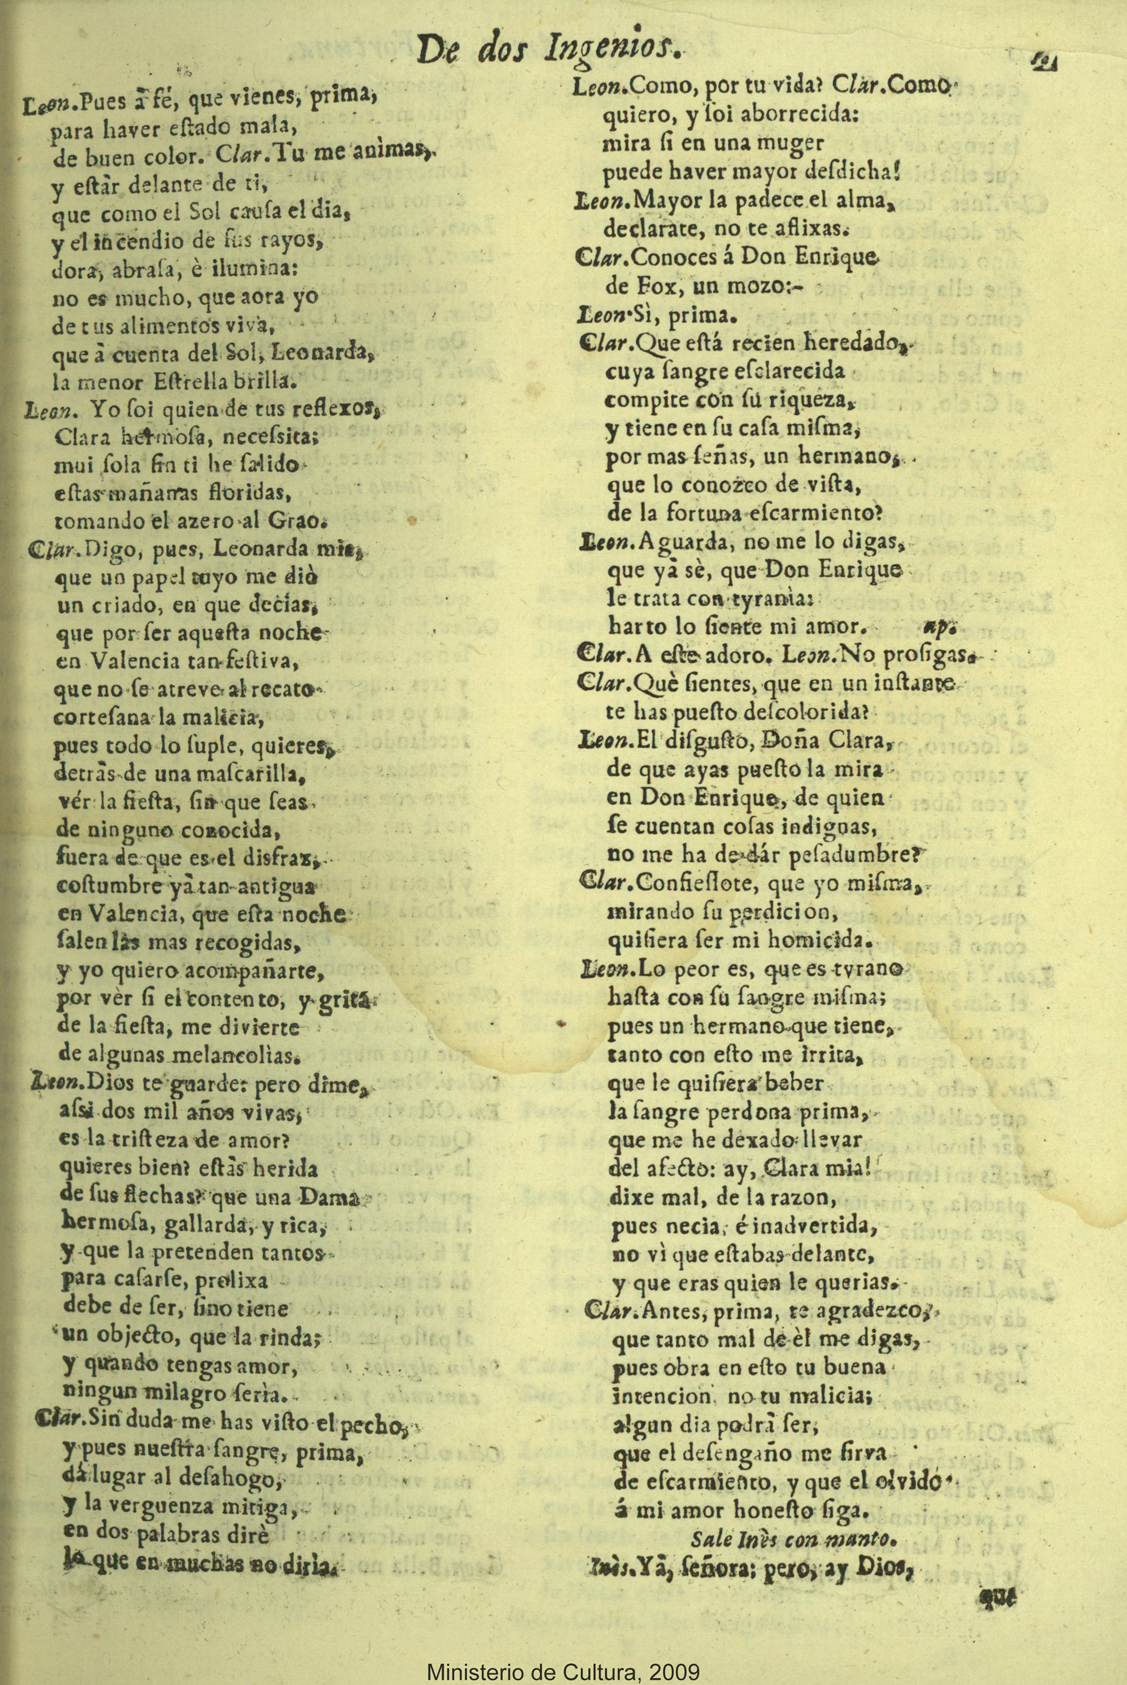 De dos Ingenios.
Leon.Pues à fé, que vienes, prima,
para haver eſtado mala,
de buen color. Clar.Tu me animas,
y eſtàr delante de ti,
que como el Sol cauſa el dia,
y el incendio de ſus rayos,
dora, abraſa, è ilumina:
no es mucho, que aora yo
de tus alimentos viva,
que à cuenta del Sol, Leonarda,
la menor Eſtrella brilla.
Leon. Yo ſoi quien de tus reflexos,
Clara hermoſa, neceſsita;
mui ſola ſin ti he ſalido
eſtas mañanas floridas,
tomando el azero al Grao.
Clar.Digo, pues, Leonarda mia,
que un papel tuyo me diò
un criado, en que decias,
que por ſer aqueſta noche
en Valencia tan feſtiva,
que no ſe atreve al recato
corteſana la malicia,
pues todo lo ſuple, quieres,
detràs de una maſcarilla,
vér la fieſta, ſin que ſeas
de ninguno conocida,
fuera de que es el disfraz,
coſtumbre yà tan antigua
en Valencia, que eſta noche
ſalen làs mas recogidas,
y yo quiero acompañarte,
por vèr ſi el contento, y grita
de la fieſta, me divierte
de algunas melancolìas.
Leon.Dios te guarde: pero dime,
aſsi dos mil años vivas,
es la triſteza de amor?
quieres bien? eſtàs herida
de ſus flechas? que una Dama
hermoſa, gallarda, y rica,
y que la pretenden tantos
para caſarſe, prolixa
debe de ſer, ſino tiene
un objecto, que la rinda;
y quando tengas amor,
ningun milagro ſeria.
Clar.Sin duda me has viſto el pecho,
y pues nueſtra ſangre, prima,
dá lugar al deſahogo,
y la verguenza mitiga,
en dos palabras dirè
lo que en muchas no diria.
Leon.Como, por tu vida? Clar.Como
quiero, y ſoi aborrecida:
mira ſi en una muger
puede haver mayor deſdicha!
Leon.Mayor la padece el alma,
declarate, no te aflixas.
Clar.Conoces á Don Enrique
de Fox, un mozo:-
Leon.Sì, prima.
Clar.Que eſtá recien heredado,
cuya ſangre eſclarecida
compite con ſu riqueza,
y tiene en ſu caſa miſma,
por mas ſeñas, un hermano,
que lo conozco de viſta,
de la fortuna eſcarmiento?
Leon.Aguarda, no me lo digas,
que yà sè, que Don Enrique
le trata con tyranìa:
harto lo ſiente mi amor. ap.
Clar.A eſte adoro. Leon.No proſigas.
Clar.Què ſientes, que en un inſtante
te has pueſto deſcolorida?
Leon.El diſguſto, Doña Clara,
de que ayas pueſto la mira
en Don Enrique, de quien
ſe cuentan coſas indignas,
no me ha de dár peſadumbre?
Clar.Confieſſote, que yo miſma,
mirando ſu perdicion,
quiſiera ſer mi homicida.
Leon.Lo peor es, que es tyrano
haſta con ſu ſangre miſma;
pues un hermano que tiene,
tanto con eſto me irrita,
que le quiſiera beber
la ſangre perdona prima,
que me he dexado llevar
del afecto: ay, Clara mia!
dixe mal, de la razon,
pues necia, é inadvertida,
no vì que eſtabas delante,
y que eras quien le querias.
Clar.Antes, prima, te agradezco,
que tanto mal de èl me digas,
pues obra en eſto tu buena
intencion, no tu malicia;
algun dia podrà ſer,
que el deſengaño me ſirva
de eſcarmiento, y que el olvido
á mi amor honeſto ſiga.
Sale Inès con manto.
Inès.Yà, ſeñora; pero, ay Dios,
que
Ministerio de Cultura, 2009